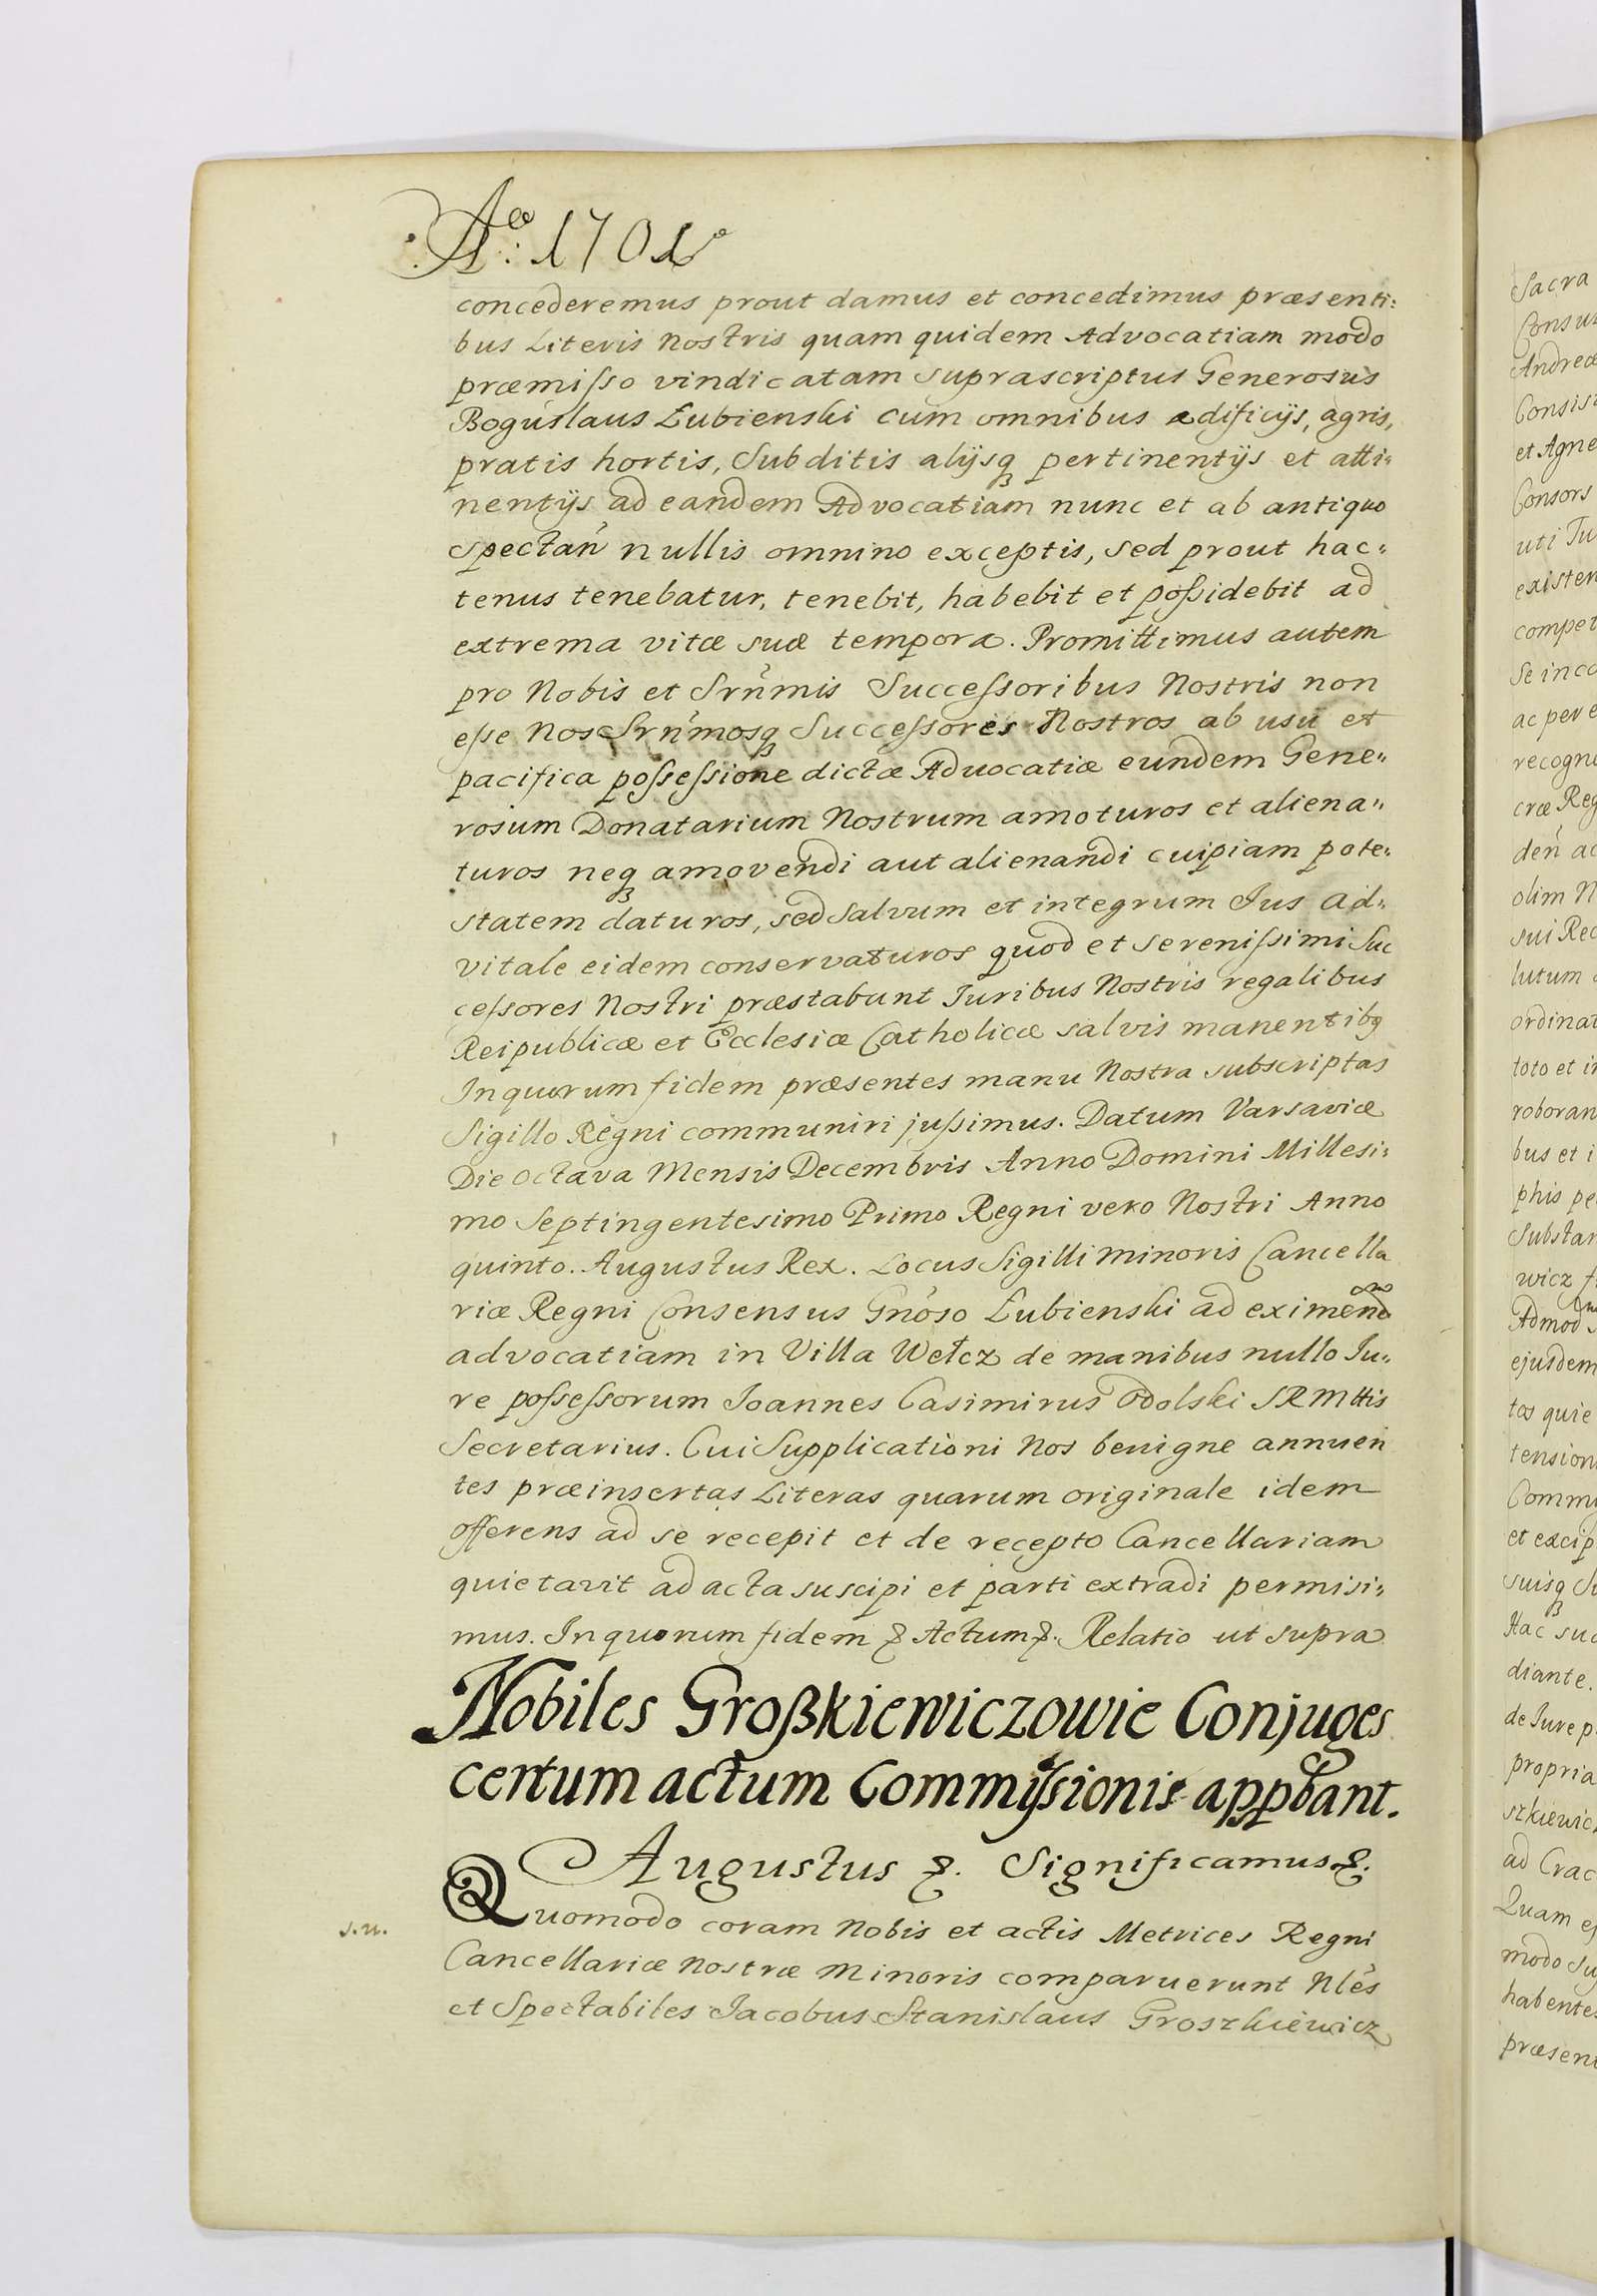 Aō: 1701º
concederemus prout damus et concedimus præsenti:
bus Literis nostris quam quidem Advocatiam modo
præmiſso vindicatam suprascriptus Generosus
Boguslaus Łubienski cum omnibus ædificijs, agris,
pratis hortis, Subditis alijsq́ pertinentijs et atti:
nentijs ad eandem Advocatiam nunc et ab antiquo
spectań nullis omnino exceptis, sed prout hac:
tenus tenebatur, tenebit, habebit et poſsidebit ad
extrema vitæ suæ tempora. Promittimus autem
pro Nobis et Srńmis Succeſsoribus Nostris non
eſse Nos Srńmosq Succeſsores Nostros ab usu et
pacifica poſseſsione dictæ Advocatiæ eundem Gene:
rosum Donatarium Nostrum amoturos et aliena:
turos neq amovendi aut alienandi cuipiam pote:
statem daturos, sed salvum et integrum Jus ad:
vitale eidem conservaturos quod et sereniſsimi Suc
ceſsores Nostri præstabunt Juribus Nostris regalibus
Reipublicæ et Ecclesiæ Catholicæ salvis manentibq
In quorum fidem præsentes manu Nostra subscriptas
Sigillo Regni communiri juſsimus. Datum Varsaviæ
Die octava Mensis Decembris Anno Domini Millesi:
mo Septingentesimo Primo Regni vero Nostri Anno
quinto. Augustus Rex. Locus Sigilli minoris Cancella
riæ Regni Consensus Gnóso Łubienski ad eximend
advocatiam in Villa Wełcz de manibus nullo Ju:
re poſseſsorum Joannes Casimirus Odolski SRMttis
Secretarius. Cui Supplicationi Nos benigne annuen
tes præinsertas Literas quarum originale idem
offerens ad se recepit et de recepto Cancellariam
quietavit ad acta suscipi et parti extradi permisi:
mus. In quorum fidem & Actum &. Relatio ut supra
Nobiles Großkiewiczowie Conjuges
certum actum Commiſsionis appbant.
Augustus &. Significamus &.
Quomodo coram Nobis et actis Metrices Regni
s.n.
Cancellariæ Nostræ Minoris comparuerunt Nles
et Spectabiles Jacobus Stanislaus Groszkiewicz
Sacra
Andreæ
et Agne
Consors
uti Ju
existen
compet
se inco
ac per e
recogno
cræ Reg
deń ac
olim N
sui Rec
lutum
ordinat
toto et in
roboran
bus et i
phis pe
Substan
wicz f
Admod
ejusdem
tos quie
tension
Commi
et excip
suisq Su
Hac suo
diante.
de Jure p
propria
szkiewic
ad Crac
Quam ej
modo su
habentes
præsent